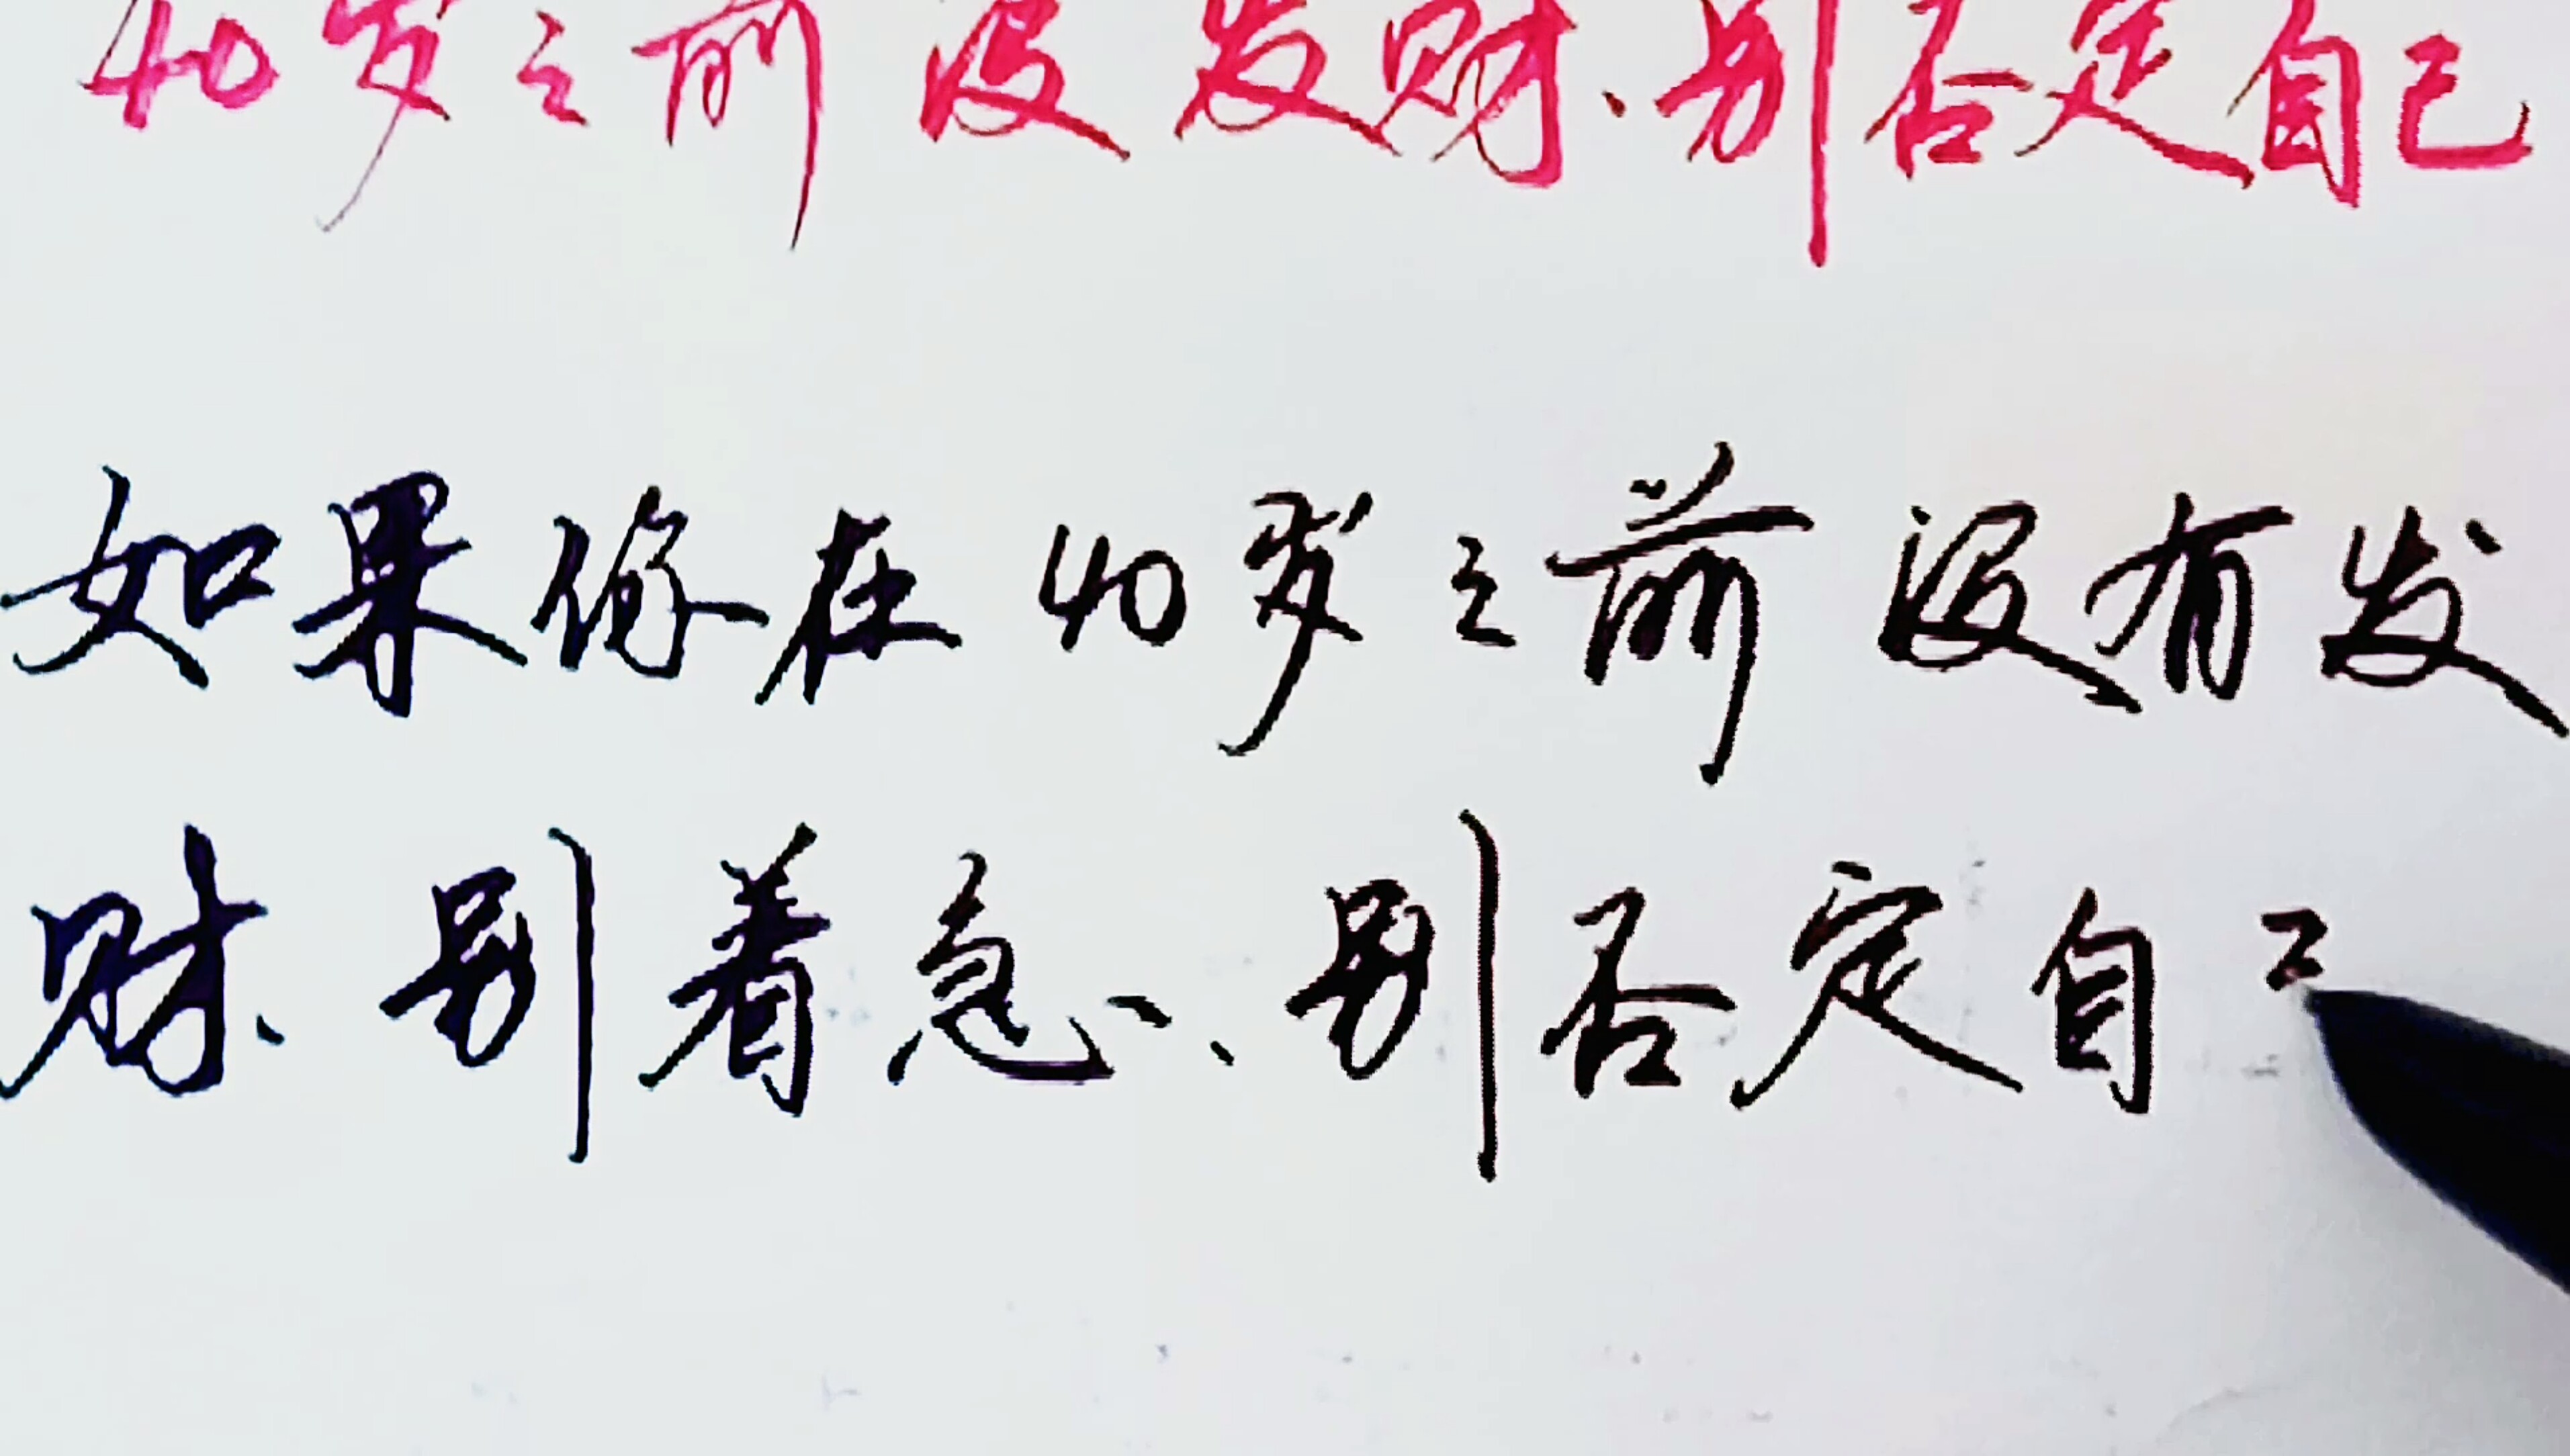 40岁之前没发财、别否定自己
如果你在40岁之前没有发
财、别着急、别否定自己